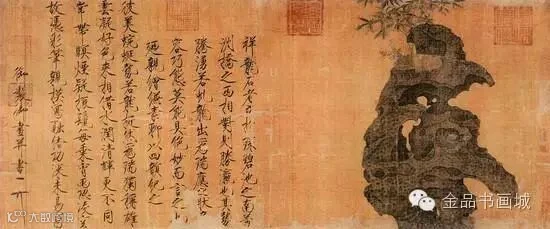 祥龍石者立於環碧池之南芳
洲橋之西相對則勝瀛也其勢
騰湧若虬龍出為瑞應之狀奇
容巧態莫能具絕妙而言之也
廼親繪縑素聊以四韻紀之
彼美蜿蜒勢若龍挺然為瑞獨稱雄
雲凝好色來相借水潤清輝更不同
常帶暝煙疑振鬣每乘宵雨恐凌空
故憑彩筆親模寫融結功深未易窮
御製御畫并書
金品书画城